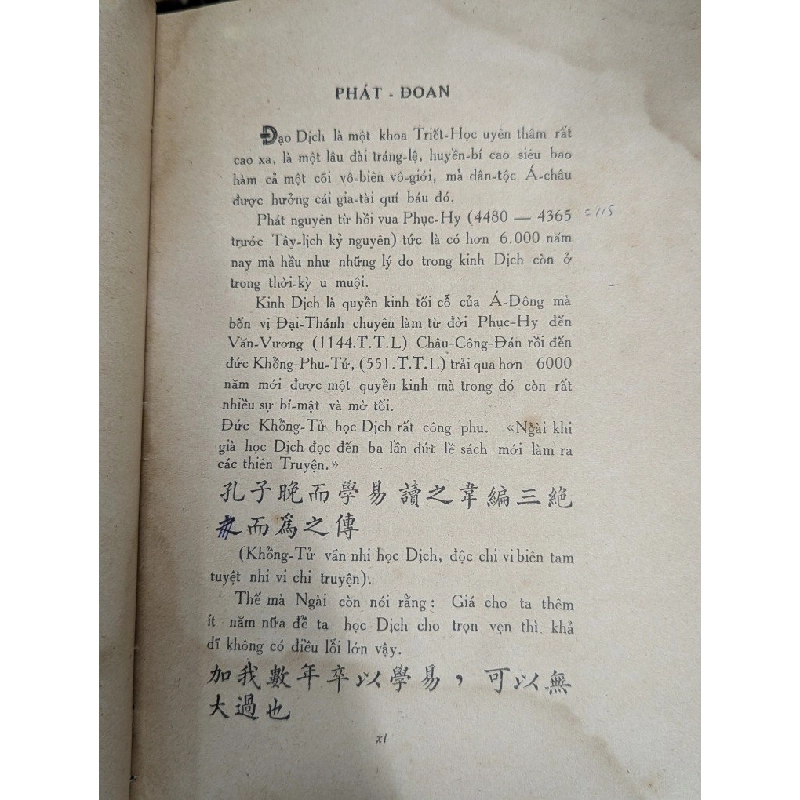 PHÁT - ĐOAN
Đạo Dịch là một khoa Triết-Học uyên thâm rất
cao xa, là một lâu đài tráng-lệ, huyền-bí cao siêu bao
hàm cả một cõi vô-biên vô-giới, mà dân-tộc Á-châu
được hưởng cái gia-tài quí báu đó.
Phát nguyên từ hồi vua Phục-Hy (4480 — 4365
trước Tây-lịch kỷ nguyên) tức là có hơn 6.000 năm
nay mà hầu như những lý do trong kinh Dịch còn ở
trong thời-kỳ u muội.
Kinh Dịch là quyển kinh tối cổ của Á-Đông mà
bốn vị Đại-Thánh chuyên làm từ đời Phục-Hy đến
Văn-Vương (1144.T.T.L) Châu-Công-Đán rồi đến
đức Khổng-Phu-Tử, (551.T.T.L) trải qua hơn 6000
năm mới được một quyển kinh mà trong đó còn rất
nhiều sự bí-mật và mờ tối.
Đức Khổng-Tử học Dịch rất công phu. «Ngài khi
già học Dịch đọc đến ba lần đứt lề sách mới làm ra
các thiên Truyện.»
孔子晚而學易讀之韋編三絶
而爲之傳
(Khổng-Tử vãn nhi học Dịch, độc chi vi biên tam
tuyệt nhi vi chi truyện).
Thế mà Ngài còn nói rằng: Giá cho ta thêm
ít năm nữa để ta học Dịch cho trọn vẹn thì khả
dĩ không có điều lỗi lớn vậy.
加我數年卒以學易，可以無
大過也
xi